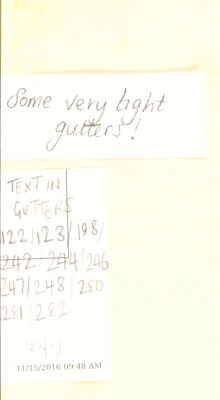 Some very tight
gutters!
TEXT IN
GUTTERS
122/123/198/
242/244/246
247/248/280
281/282
11/15/2016 09:48 AM